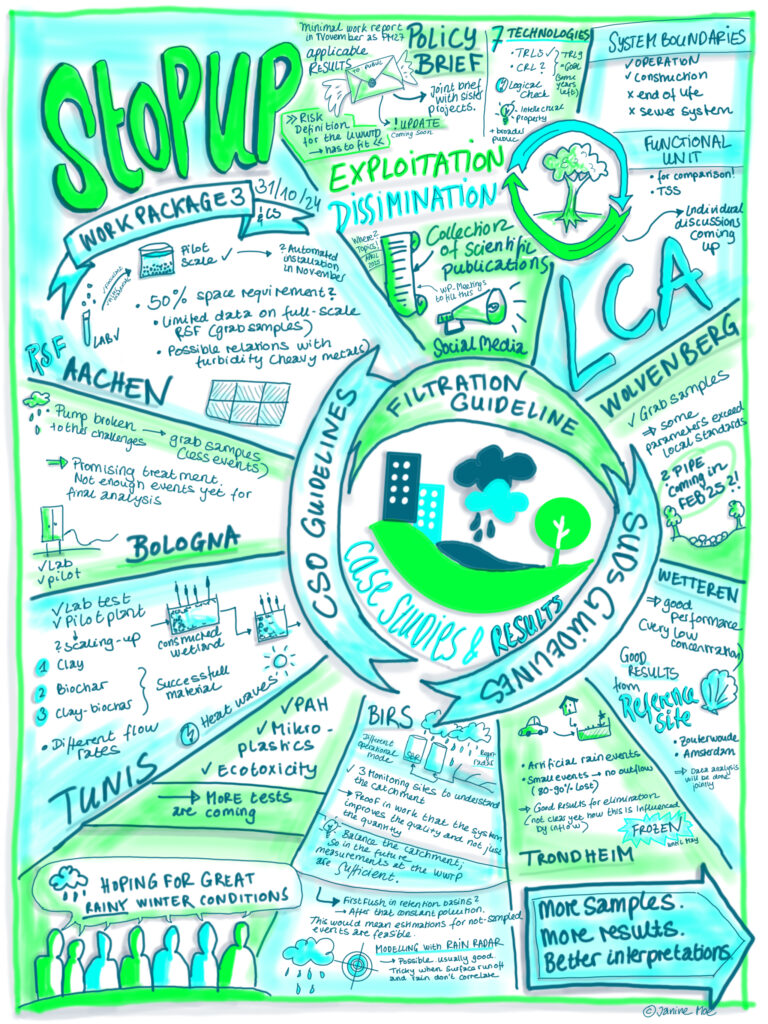 StoPUP
WORK PACKAGE 3
31/10/24
& CS
Minimal work report
in November as PM27
applicable
RESULTS
TO PUBLIC
POLICY
BRIEF
Joint brief
with sister
projects.
>> Risk
Definition
for the UWWTD
→ has to fit <<
! UPDATE
Coming Soon
7 TECHNOLOGIES
• TRL5
• CRL?
TRL9
= Goal
(some
years
left)
Logical
Check
Intellectual
Property
+ broader
public
EXPLOITATION
DISSIMINATION
Where?
Topics!
Collection
of Scientific
publications
WP-Meetings
to fill this
Social Media
SYSTEM BOUNDARIES
✓ OPERATION
✓ construction
x end of life
x sewer system
FUNCTIONAL
UNIT
• for comparison!
• TSS
→ Individual
discussions
coming
up
LCA
Pilot
Scale ✓
→ 2 Automated
installation
in November
LAB ✓
• 50% space requirement?
• Limited data on full-scale
RSF (grab samples)
• Possible relations with
turbidity (heavy metals)
RSF
AACHEN
Pump broken
+ other challenges
→ grab samples
(less events)
⇒ Promising treatment.
Not enough events yet for
final analysis
✓ Lab
✓ pilot
BOLOGNA
FILTRATION
GUIDELINE
CSO GUIDELINES
SUDs GUIDELINES
case studies &
RESULTS
WOLVENBERG
✓ Grab samples
⇒ some
parameters exceed
local standards
2 PIPE
coming in
FEB 25 2!
WETTEREN
⇒ good
performance
(very low
concentration)
GOOD
RESULTS
from
Reference
Site
• Zouterwoude
• Amsterdam
⇒ Data analysis
will be done
jointly
✓ Lab test
✓ Pilot plant
2 scaling-up
constructed
wetland
1 Clay
2 Biochar
3 Clay-biochar
Successfull
material
• Different flow
rates
Heat waves
TUNIS
✓ PAH
✓ Mikro-
plastics
✓ Ecotoxicity
→ MORE tests
are coming
BIRS
Different
operational
mode
Rain
radar
✓ 3 Monitoring sites to understand
the catchment
→ Proof in work that the system
improves the quality and not just
the quantity
Balance the catchment;
so in the future
measurements at the WWTP
are sufficient.
→ First flush in retention basins?
→ After that constant pollution.
This would mean estimations for not-sampled
events are feasible.
MODELLING with RAIN RADAR
→ Possible usually good
Tricky when surface run off
and rain don't correlate
• Artificial rain events
• Small events → no outflow
(80-90% lost)
→ Good Results for elimination
(not clear yet how this is influenced
by inflow)
FROZEN
until May
TRONDHEIM
HOPING FOR GREAT
RAINY WINTER CONDITIONS
More samples.
More results.
Better interpretations.
© Janine Moe